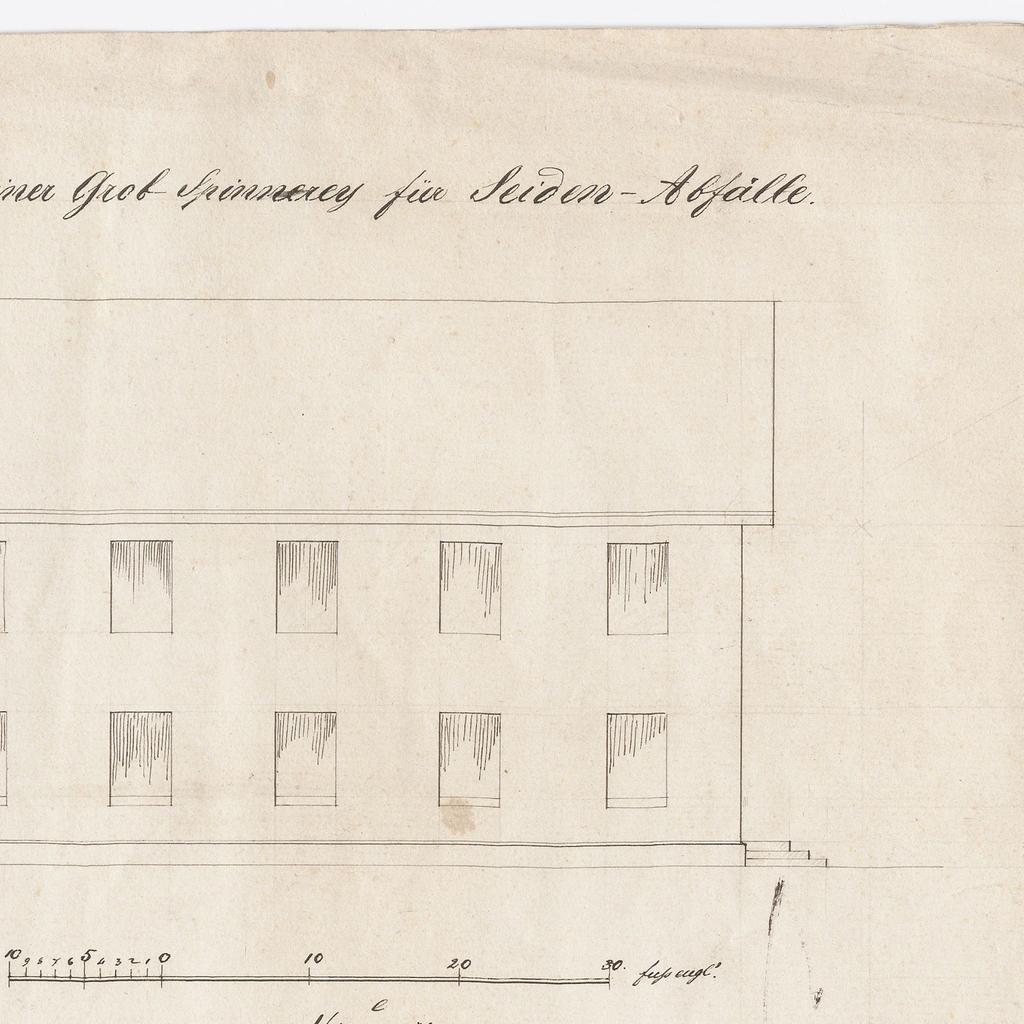 iner Grob Spinnerey für Seiden-Abfälle.
10 9 8 7 6 5 4 3 2 1 0 10 20 30. fuss engl.